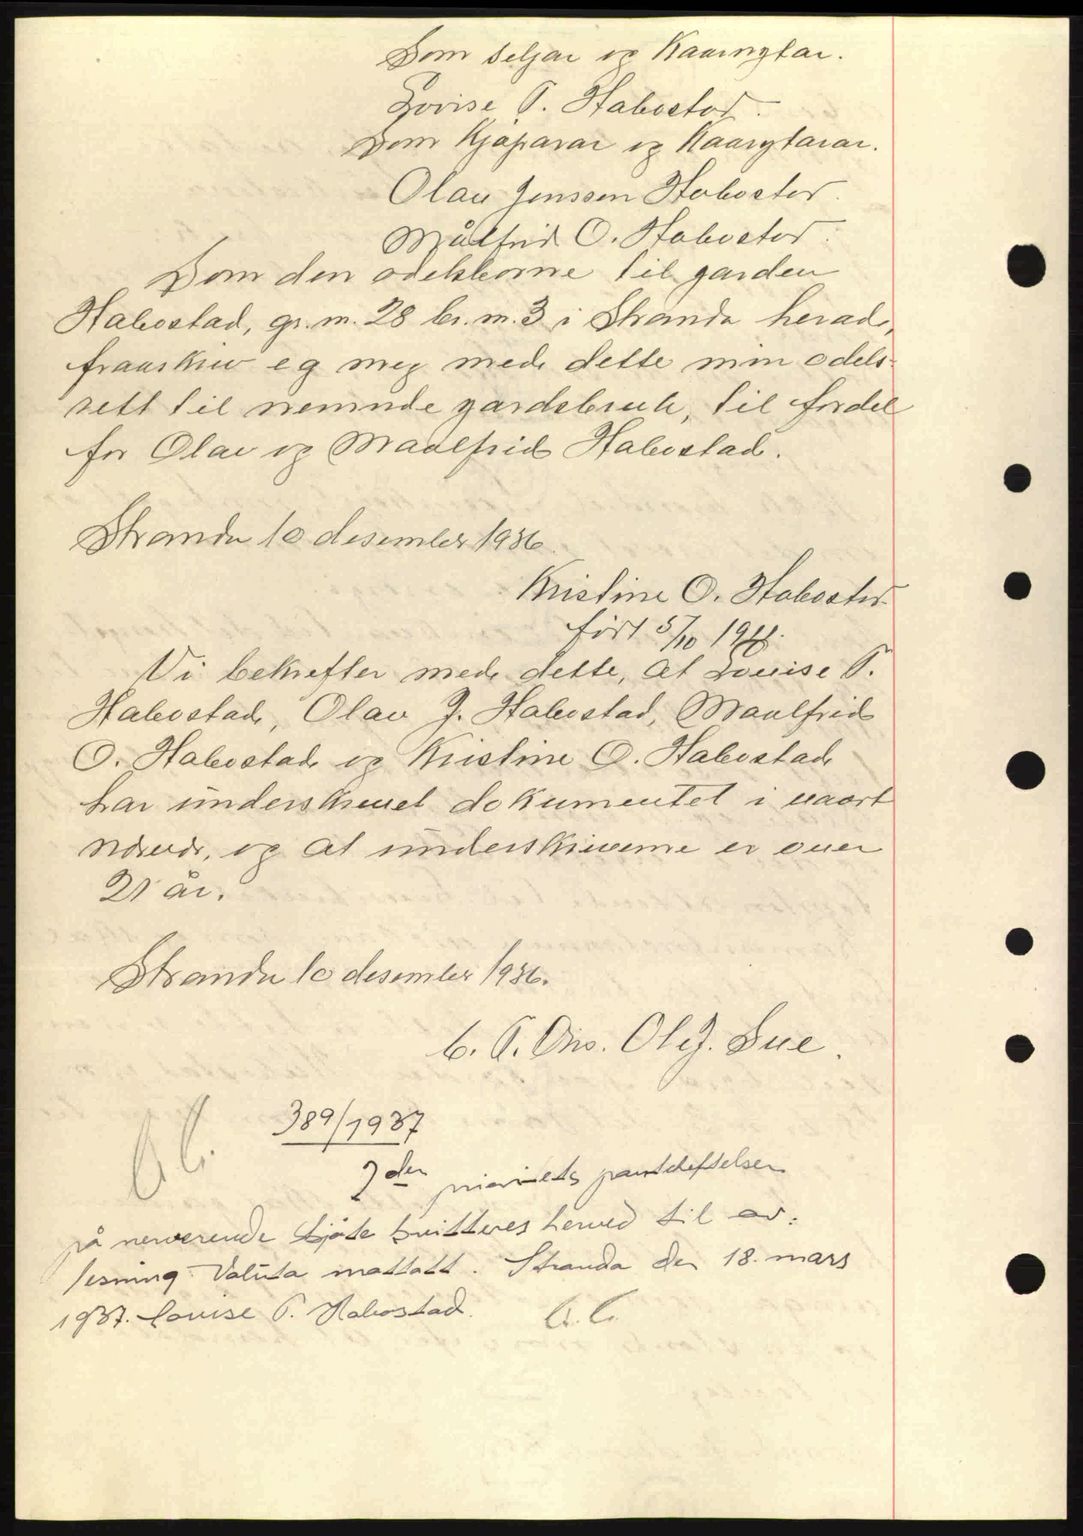 Som seljar og Kaarnytar.
Lovise P. Habostad.
Som Kjöparar og Kaarytarar.
Olav Jenssen Habostad.
Målfrid O. Habostad.
Som den odelsborne til garden
Habostad, gr. nr. 28 br. nr. 3 i Stranda herad,
fraaskriv eg meg med dette min odels-
rett til nemnde gardsbruk, til fordel
for Olav og Maalfrid Habostad.
Stranda 10 desember 1936.
Kristine O. Habostad
født 5/10 1911.
Vi bekrefter med dette, at Lovise P.
Habostad, Olav J. Habostad, Maalfrid
O. Habostad og Kristine O. Habostad
har underskrevet dokumentet i vaart
nærvær, og at underskriverne er over
21 år.
Stranda 10 desember 1936.
C. P. Ous. Ole J. Sve.
389/1937
2den prioritets pantheftelsen
på nerverende skjöte kvitteres herved til av=
lesning. Valuta mottatt. Stranda den 18. mars
1937. Lovise P. Habostad.